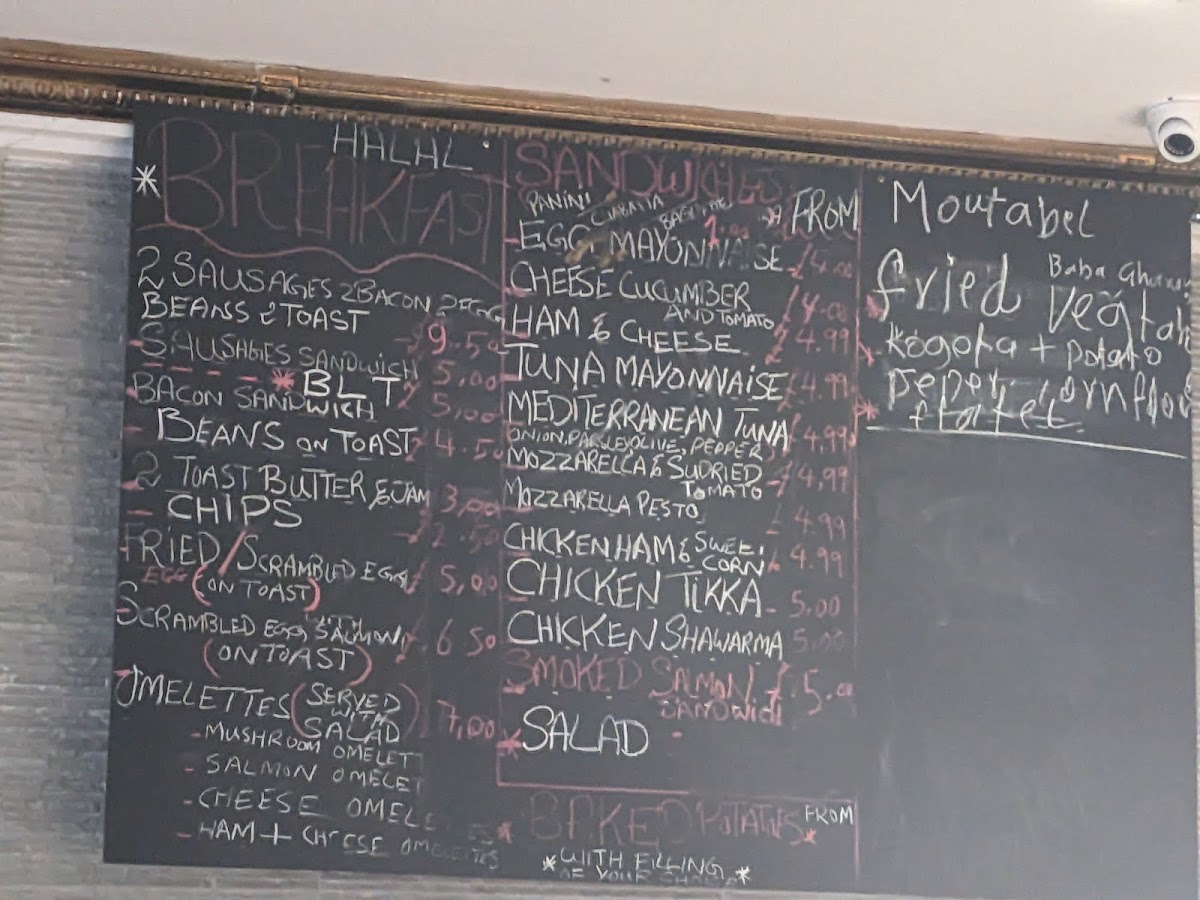 HALAL
* BREAKFAST
2 SAUSAGES 2 BACON 2 EGG
BEANS & TOAST - 9.50
- SAUSAGES SANDWICH £ 5,00
* BLT
BACON SANDWICH £ 5,00
- BEANS ON TOAST £ 4.50
- 2 TOAST BUTTER & JAM 3,00
- CHIPS - 2.50
FRIED / SCRAMBLED EGG £ 5,00
EGG (ON TOAST)
SCRAMBLED EGG WITH SALMON £ 6.50
(ON TOAST)
OMELETTES (SERVED WITH SALAD) 7,00
- MUSHROOM OMELET
- SALMON OMELET
- CHEESE OMELE
- HAM + CHEESE OMELETTES
SANDWICHES
PANINI CIABATTA BAGUETTE 1.00 FROM
- EGG MAYONNAISE £4.00
CHEESE CUCUMBER £4.00
AND TOMATO
HAM & CHEESE £4.99
TUNA MAYONNAISE £4.99
MEDITERRANEAN TUNA £4.99
ONION, PARSLEY, OLIVE, PEPPER
MOZZARELLA & SUDRIED - 4,99
TOMATO
MOZZARELLA PESTO £ 4.99
CHICKEN HAM & SWEET £ 4.99
CORN
CHICKEN TIKKA - 5.00
CHICKEN SHAWARMA 5.00
SMOKED SALMON £ 5.00
SANDWICH
* SALAD -
* BAKED POTATOES * FROM
* WITH FILLING
OF YOUR CHOICE *
Moutabel
Baba
fried
kogota + potato